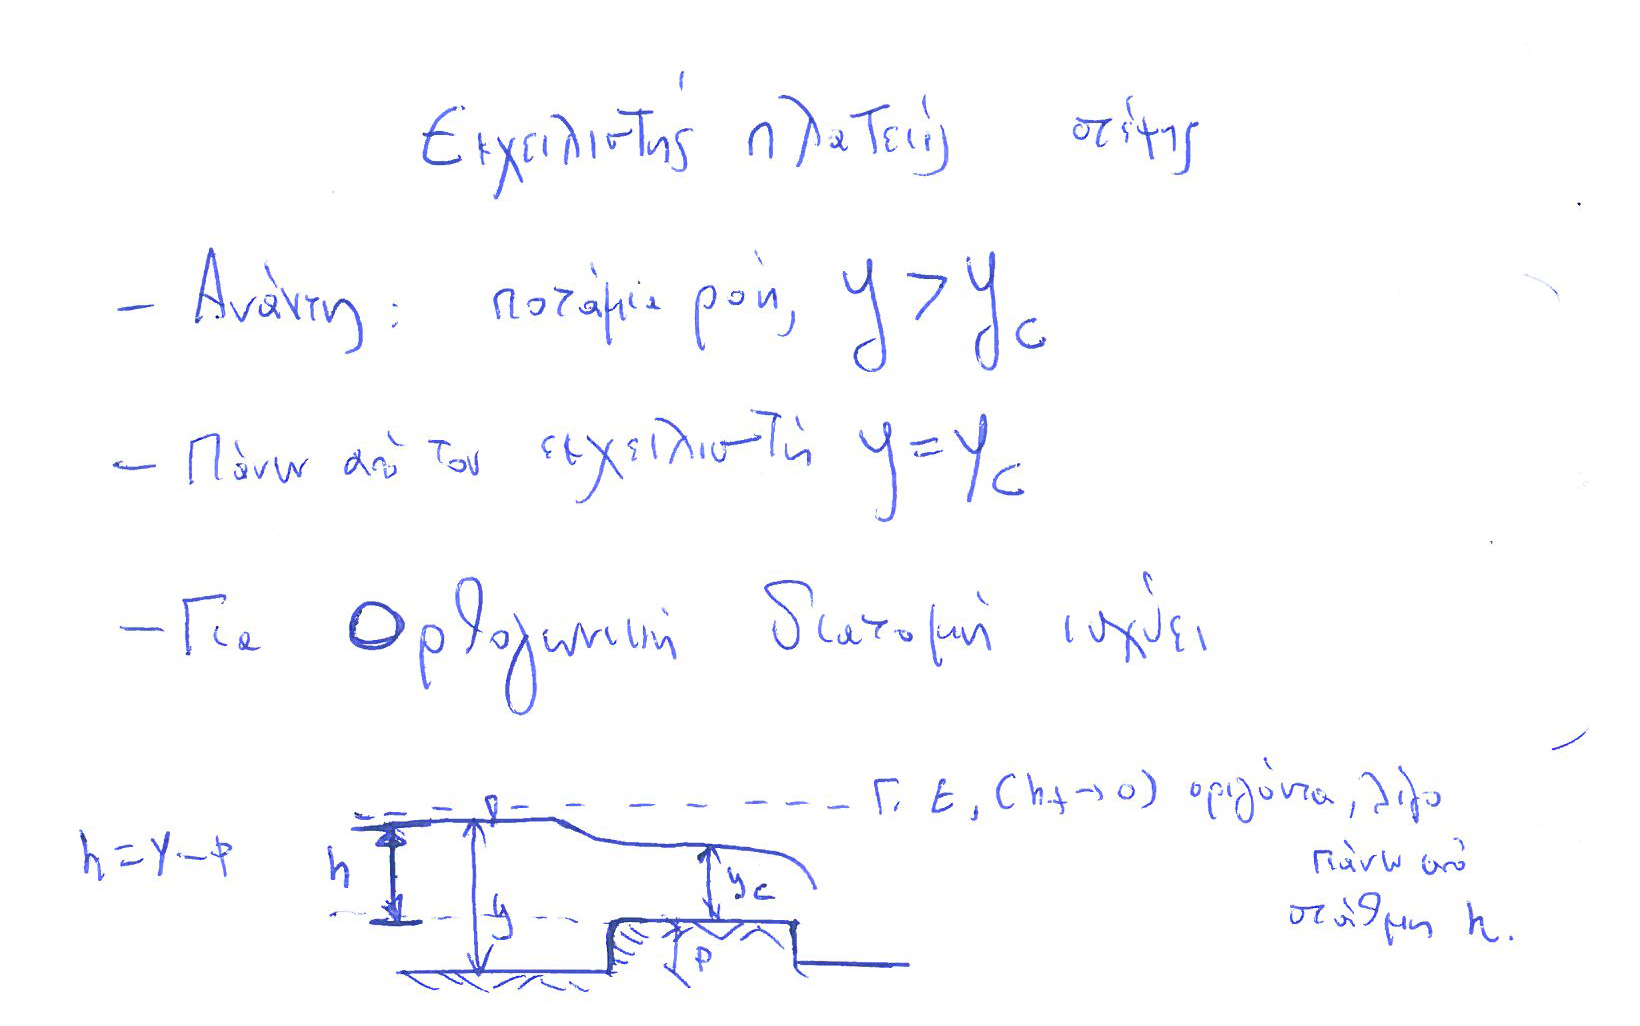 Εκχειλιστής πλατειάς στέψης
- Ανάντη: ποτάμια ροή, y > yc
- Πάνω από τον εκχειλιστή y = yc
- Για Ορθογωνική διατομή ισχύει
Γ.Ε, (hf→0) οριζόντια, λίγο
πάνω από
στάθμη h.
h = y - P
h
y
yc
P